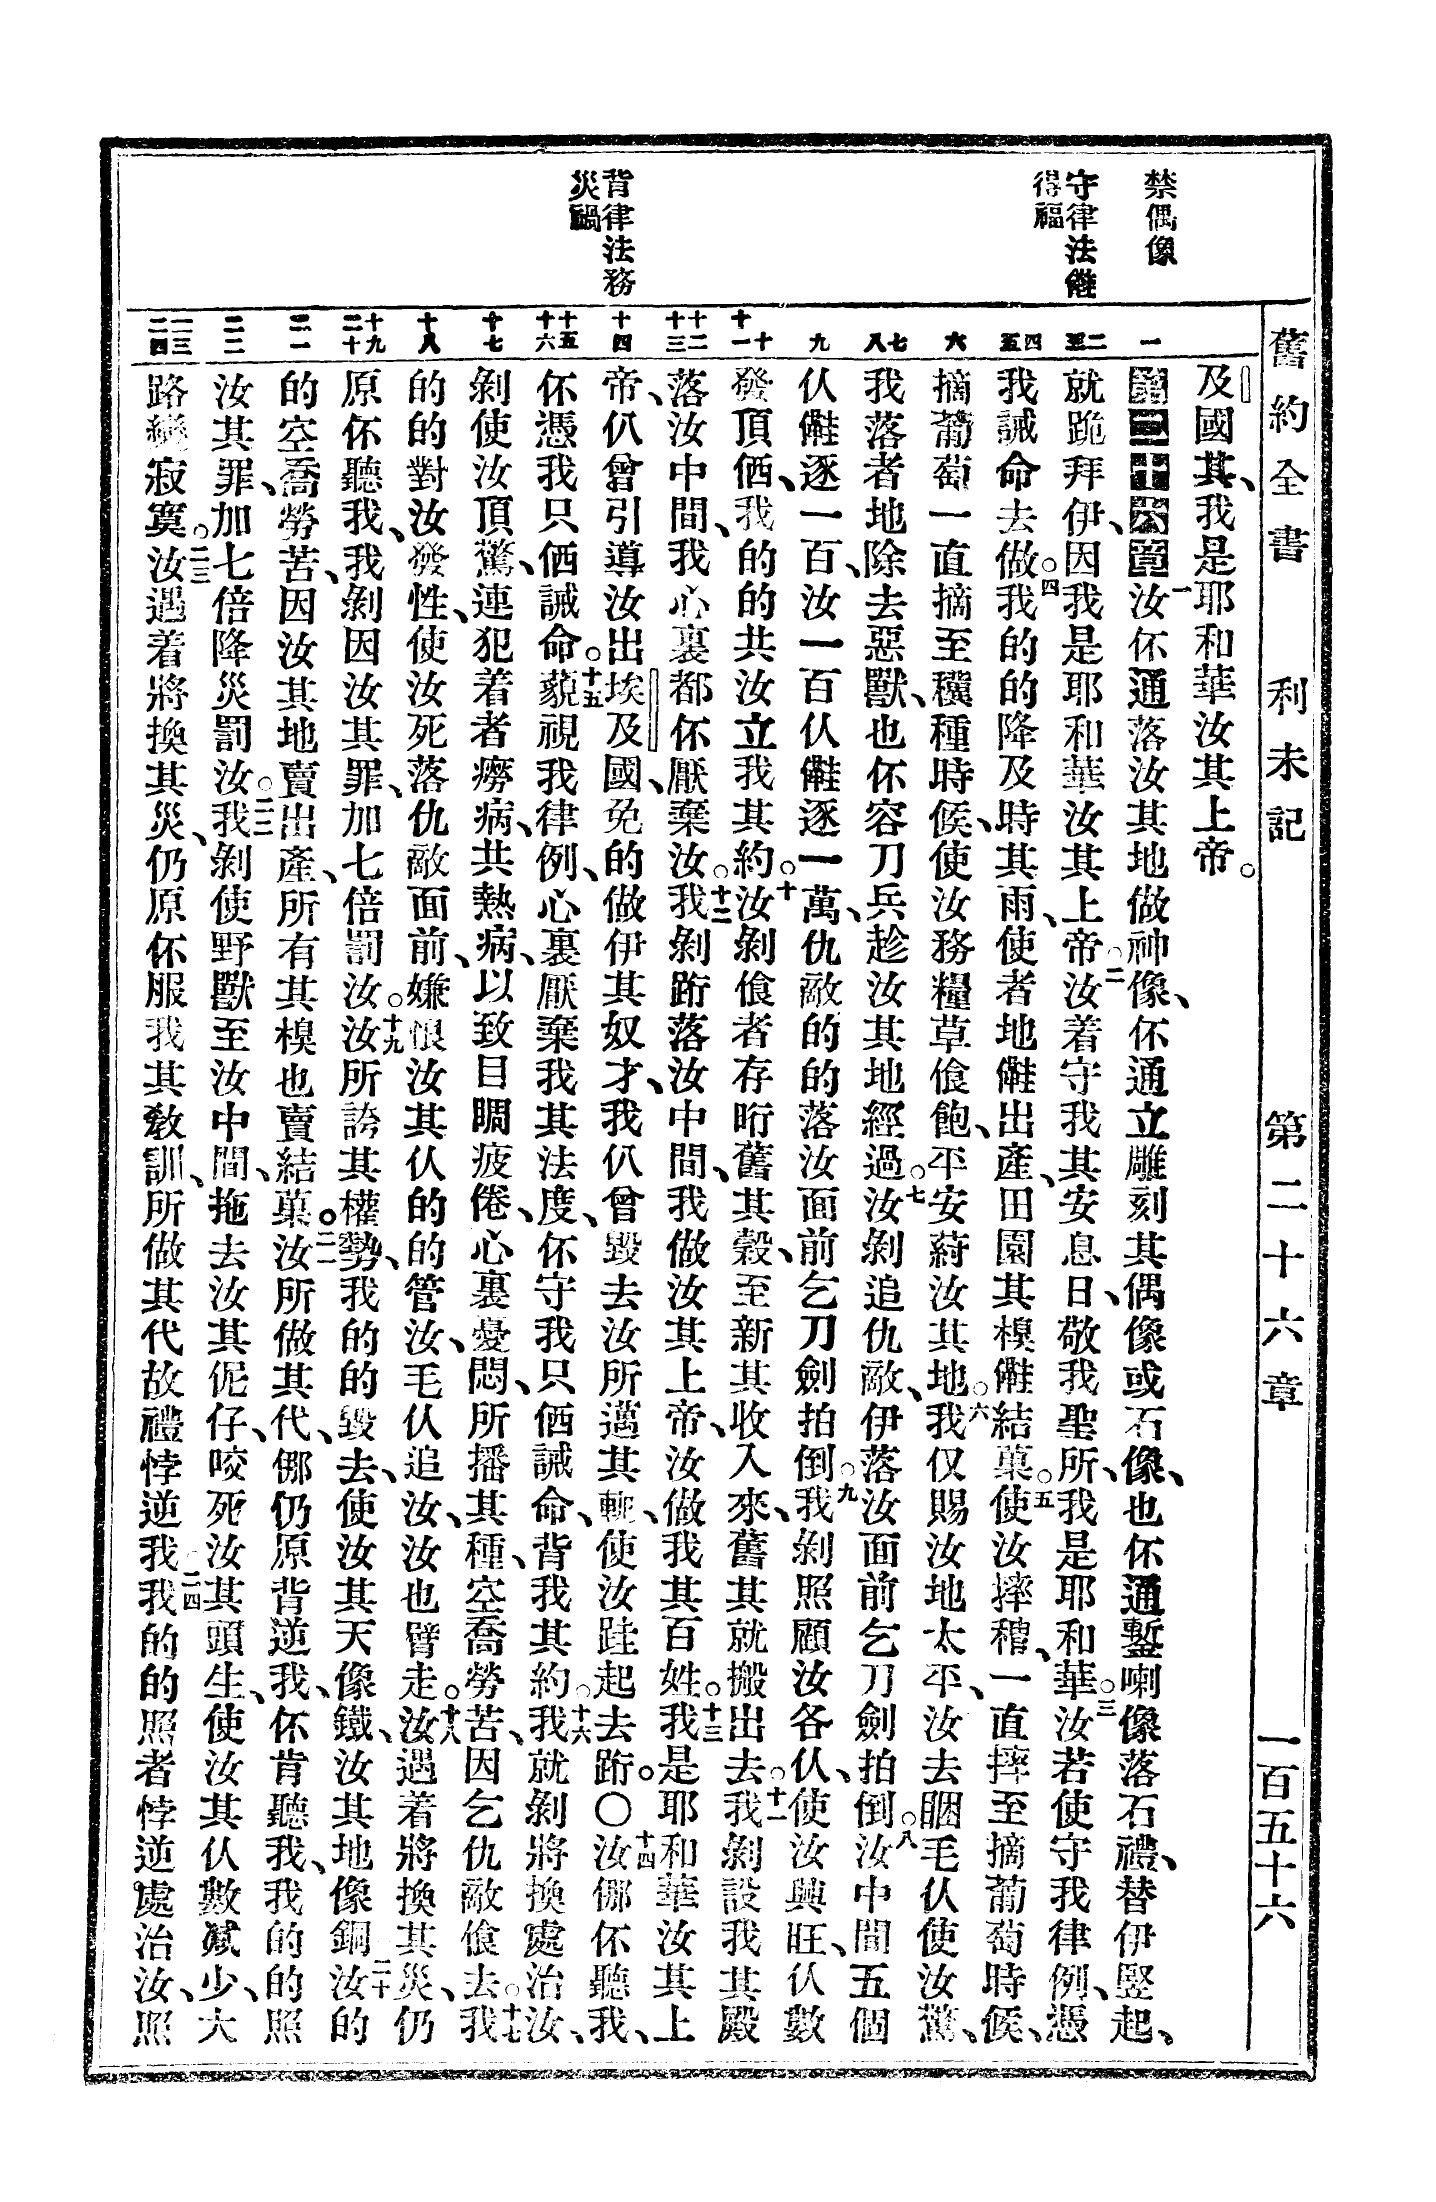 舊約全書　利未記　第二十六章　一百五十六
禁偶像
守律法𠆧
得福
背律法務
災禍
及國其、我是耶和華汝其上帝。
第二十六章一汝伓通落汝其地做神像、伓通立雕刻其偶像或石像、也伓通鏨喇像落石禮、替伊竪起、
就跪拜伊、因我是耶和華汝其上帝。二汝着守我其安息日、敬我聖所、我是耶和華。三汝若使守我律例、憑
我誡命去做。四我的的降及時其雨、使者地𠆧出產、田園其樹𠆧結菓。五使汝摔穧、一直摔至摘葡萄時候、
摘葡萄一直摘至穮種時候、使汝務糧草飧飽、平安蒔汝其地。六我仅賜汝地太平、汝去睏毛仈使汝驚、
我落者地除去惡獸、也伓容刀兵趁汝其地經過。七汝剝追仇敵、伊落汝面前乞刀劍拍倒。八汝中間五個
仈𠆧逐一百、汝一百仈𠆧逐一萬、仇敵的的落汝面前乞刀劍拍倒。九我剝照顧汝各仈、使汝興旺、仈數
發頂価、我的的共汝立我其約。十汝剝飧者存𣍐舊其穀、至新其收入來、舊其就搬出去。十一我剝設我其殿
落汝中間、我心裏都伓厭棄汝。十二我剝跡落汝中間、我做汝其上帝、汝做我其百姓。十三我是耶和華汝其上
帝、仈曾引導汝出埃及國、免的做伊其奴才、我仈曾毀去汝所邁其軛、使汝跬起去跡。〇十四汝倻伓聽我、
伓憑我只価誡命。十五藐視我律例、心裏厭棄我其法度、伓守我只価誡命、背我其約。十六我就剝將換處治汝、
剝使汝頂驚、連犯着者癆病、共熱病、以致目睭疲倦、心裏憂悶、所播其種、空喬勞苦、因乞仇敵飧去。十七我
的的對汝發性、使汝死落仇敵面前、嫌恨汝其仈的的管汝、毛仈追汝、汝也臂走。十八汝遇着將換其災、仍
原伓聽我、我剝因汝其罪、加七倍罰汝。十九汝所誇其權勢、我的的毀去、使汝其天像鐵、汝其地像銅。二十汝的
的空喬勞苦、因汝其地賣出產、所有其樹也賣結菓。二一汝所做其代、倻仍原背逆我、伓肯聽我、我的的照
汝其罪、加七倍降災罰汝。二二我剝使野獸至汝中間、拖去汝其伲仔、咬死汝其頭生、使汝其仈數減少、大
路變寂寞。二三汝遇着將換其災、仍原伓服我其教訓、所做其代故禮悖逆我。二四我的的照者悖逆處治汝、照